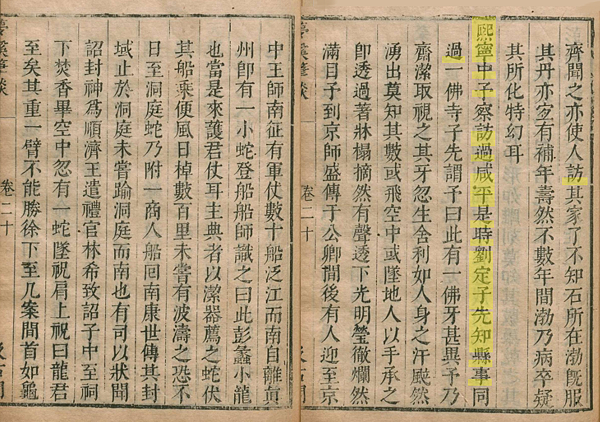 齊聞之亦使人訪其家了不知石所在渤旣服
其丹亦宐有補年壽然不數年間渤乃病卒疑
其所化特幻耳
熙寧中予察訪過咸平是時劉定子先知縣事同
過一佛寺子先謂予曰此有一佛牙甚異予乃
齋潔取視之其牙忽生舍利如人身之汗颰然
湧出莫知其數或飛空中或墜地人以手承之
卽透過著牀榻摘然有聲透下光明瑩徹爛然
滿目予到京師盛傳于公卿間後有人迎至京
卷二十
中王師南征有軍仗數十船泛江而南自離眞
州卽有一小蛇登船船師識之曰此彭蠡小龍
也當是來護君仗耳主典者以潔器薦之蛇伏
其船乘便風日棹數百里未嘗有波濤之恐不
日至洞庭蛇乃附一商人船囘南康世傳其封
域止於洞庭未嘗踰洞庭而南也有司以狀聞
詔封神爲順濟王遣禮官林希致詔子中至祠
下焚香畢空中忽有一蛇墜祝肩上祝曰龍君
至矣其重一臂不能勝徐下至几案間首如龜
夢溪筆談
卷二十